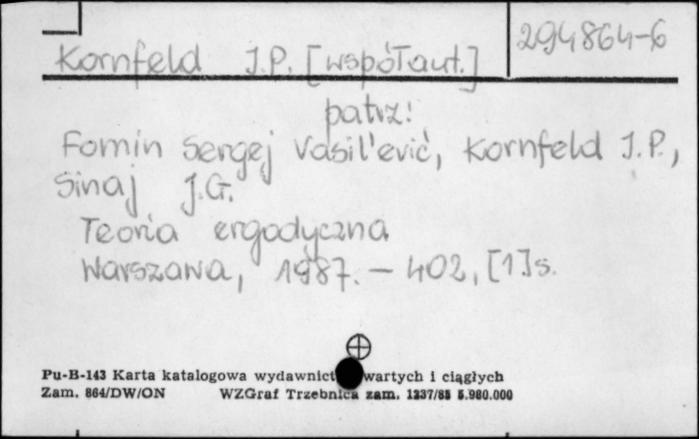 Kornfeld J.P. [współaut.] 294864-6
patrz!
Fomin Sergej Vasil'evič, Kornfeld J.P.,
Sinaj J.G.
Teoria ergodyczna
Warszawa, 1987. — 402, [1] s.
Pu-B-143 Karta katalogowa wydawnict wartych i ciągłych
Zam. 864/DW/ON WZGraf Trzebnica zam. 1237/85 5.980.000